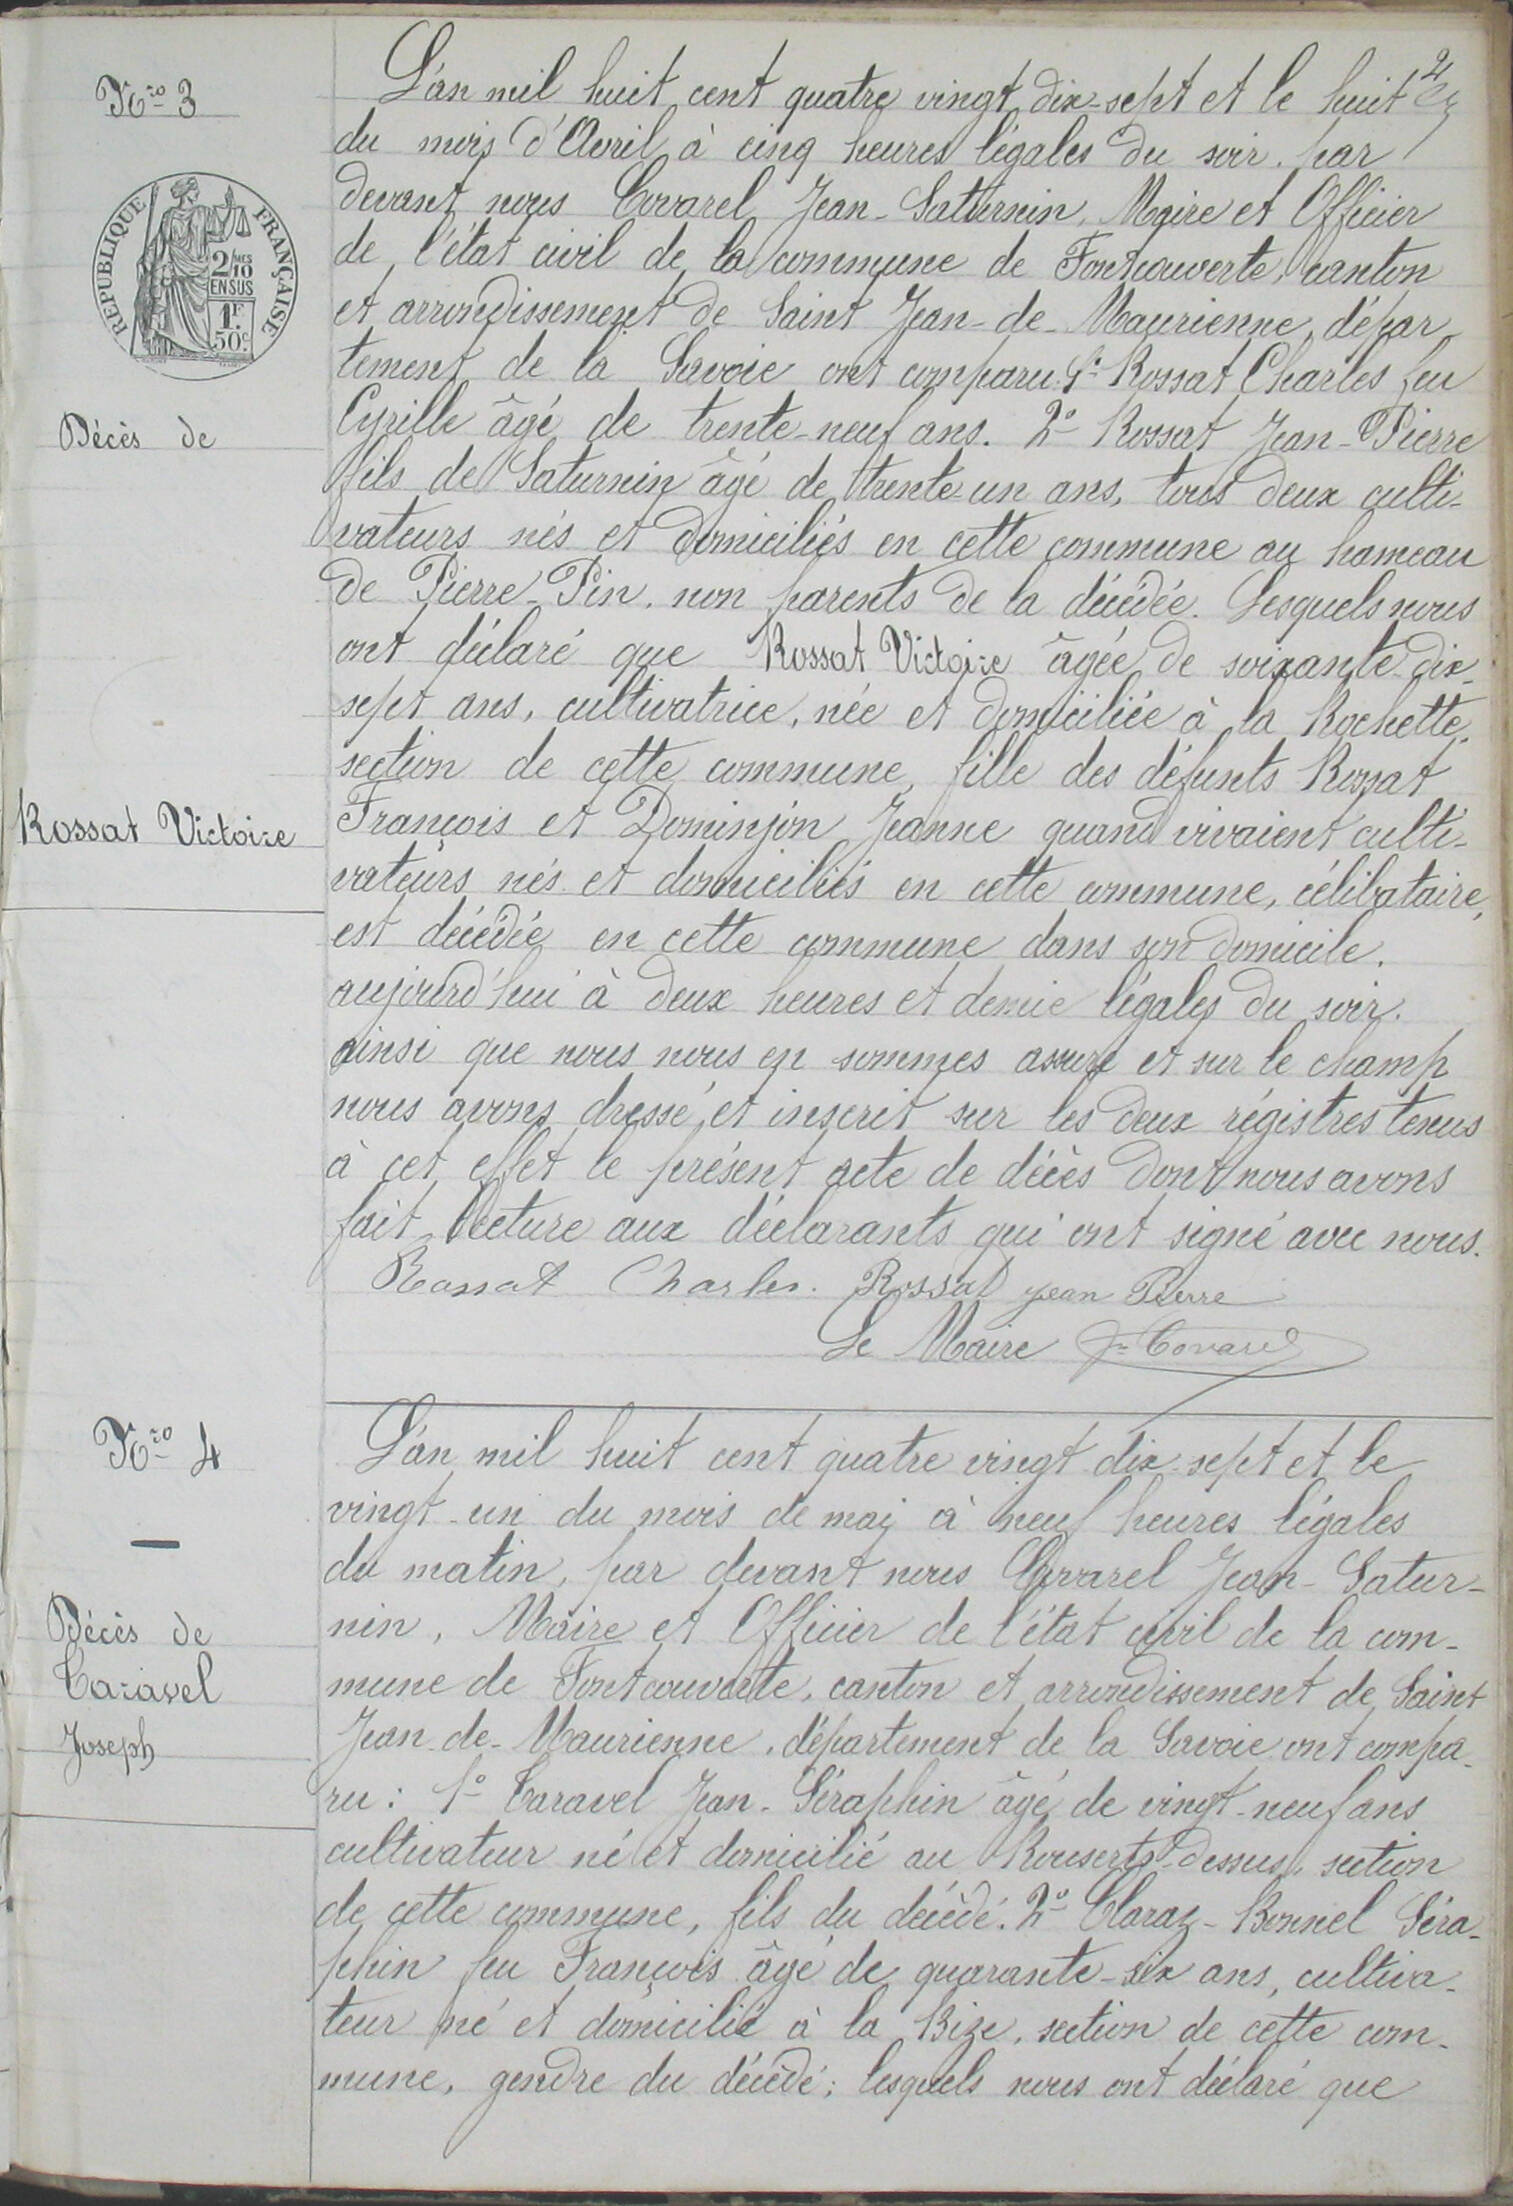 2
Nro 3
RÉPUBLIQUE FRANÇAISE
2/10MES
EN SUS
1F
50c.
Décès de
Rossat Victoire
L'an mil huit cent quatre vingt dix-sept et le huit
du mois d'Avril à cinq heures légales du soir. par
devant nous Covarel Jean-Saturnin, Maire et Officier
de l'état civil de la commune de Fontcouverte, canton
et arrondissement de Saint Jean-de-Maurienne, dépar
tement de la Savoie ont comparu 1° Rossat Charles feu
Cyrille âgé de trente-neuf ans. 2° Rossat Jean-Pierre
fils de Saturnin âgé de trente-un ans, tous deux culti-
vateurs nés et domiciliés en cette commune au hameau
de Pierre-Pin. non parents de la décédée. Lesquels nous
ont déclaré que Rossat Victoire âgée de soixante-dix-
sept ans, cultivatrice, née et domiciliée à la Rochette,
section de cette commune, fille des défunts Rossat
François et Dominjon Jeanne quand vivaient culti-
vateurs nés et domiciliés en cette commune, célibataire,
est décédée en cette commune dans son domicile.
aujourd'hui à deux heures et demie légales du soir.
ainsi que nous nous en sommes assuré et sur le champ
nous avons dressé et inscrit sur les deux régistres tenus
à cet effet le présent acte de décès dont nous avons
fait lecture aux déclarants qui ont signé avec nous.
Rossat Charles. Rossat jean Pierre
Le Maire Jn Covarel
Nro 4
Décès de
Caravel
Joseph
L'an mil huit cent quatre vingt dix-sept et le
vingt-un du mois de mai à neuf heures légales
du matin, par devant nous Covarel Jean-Satur-
nin, Maire et Officier de l'état civil de la com-
mune de Fontcouverte, canton et arrondissement de Saint
Jean-de-Maurienne, département de la Savoie ont compa-
ru : 1° Caravel Jean-Séraphin âgé de vingt-neuf ans
cultivateur né et domicilié au dessus, section
de cette commune, fils du décédé. 2° Claraz-Bonnel Séra-
phin feu François âgé de quarante-six ans, cultiva-
teur né et domicilié à la Bise, section de cette com-
mune, gendre du décédé; lesquels nous ont déclaré que